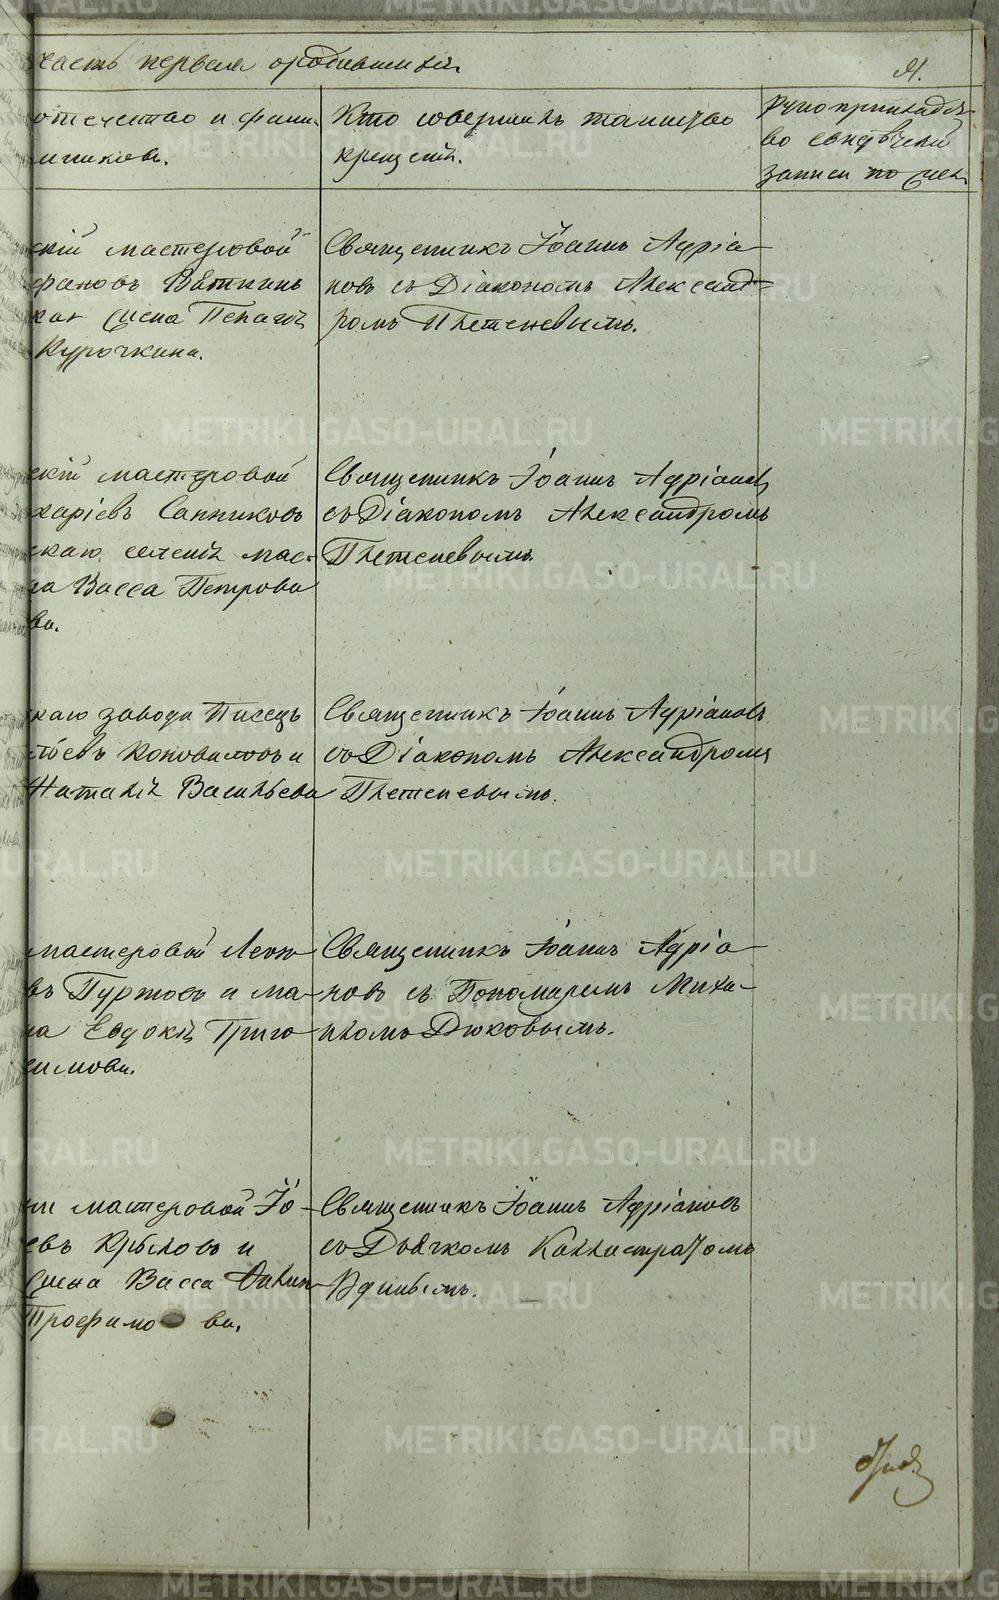 часть первая о родившихся.
отечество и фами-
мников.
Кто совершилъ таинство
крещенія.
Рукоприкладст-
во свидѣтелей
записи по же-
скій мастеровой
фановъ Вяткинъ
кая жена Пелагія
Курочкина.
Священникъ Іоаннъ Адріа-
новъ съ Діакономъ Александ-
ромъ Плетеневымъ.
скій мастеровой
харіевъ Санниковъ
скаго селенія мас-
на Васса Петрова
ва.
Священникъ Іоаннъ Адріановъ
съ Діакономъ Александромъ
Плетеневымъ.
скаго завода Писецъ
Коноваловъ и
Наталія Васильева
Священникъ Іоаннъ Адріановъ
со Діакономъ Александромъ
Плетеневымъ.
мастеровой Леон-
въ Пуртовъ и
на Евдокія Григо
симова.
Священникъ Іоаннъ Адріа-
новъ съ Пономаремъ Миха-
иломъ Дюковымъ.
мастеровой Іо-
евъ Крыловъ и
жена Васса
Трофимова.
Священникъ Іоаннъ Адріановъ
со Дьячкомъ Каллистратомъ
METRIKI.GASO-URAL.RU